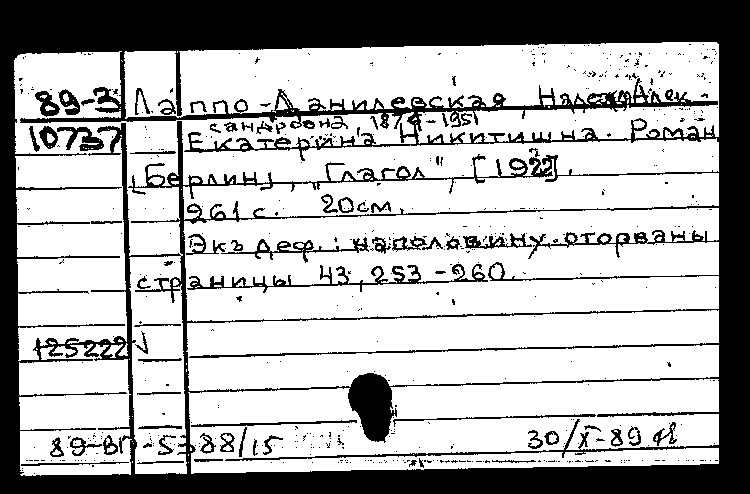 89-3 Лаппо-Данилевская, Надежда Алек-
сандровна, 1874-1951
10737 Екатерина Никитишна. Роман
[Берлин], „Глагол", [1922].
261 с. 20см.
Экз деф.: наполовину оторваны
страницы 43, 253-260.
125222 √
89-ВП-5388/15 30/X-89